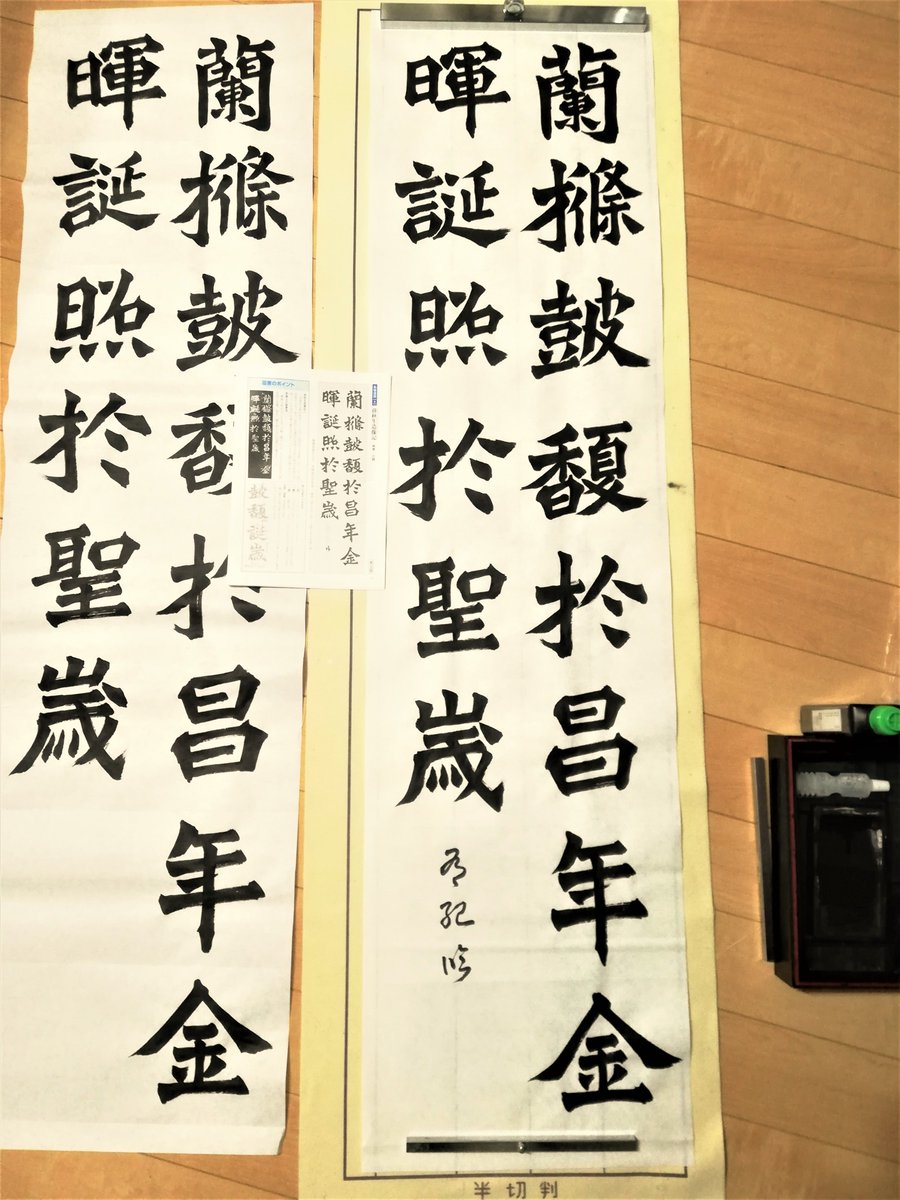 蘭樤皷馥於昌年金
暉誕照於聖嵗
有紀臨
半切判
蘭樤皷馥於昌年金
暉誕照於聖嵗
臨書のポイント
蘭樤皷馥於昌年金
暉誕照於聖嵗
皷馥誕嵗
蘭樤皷馥於昌年金
暉誕照於聖嵗